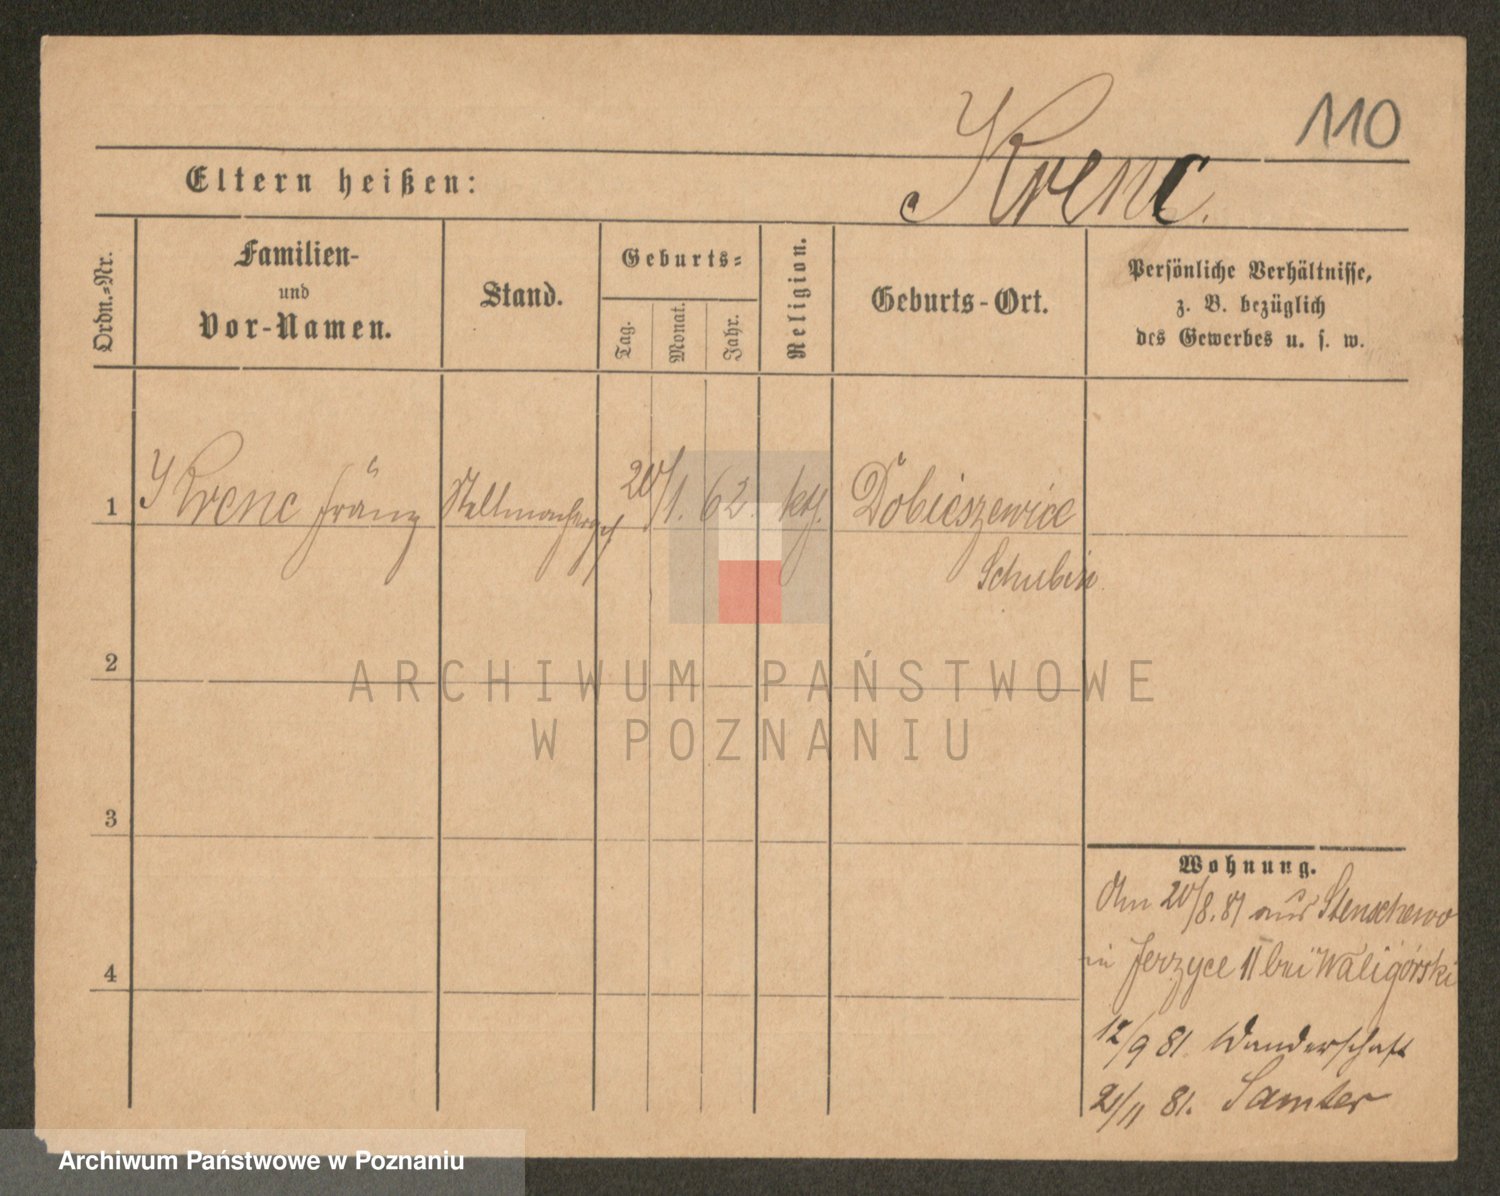 110
Krenc.
Eltern heißen:
Ordn.-Nr.
Familien-
und
Vor-Namen.
Stand.
Geburts-
Tag.
Monat.
Jahr.
Religion.
Geburts-Ort.
Persönliche Verhältnisse,
z. B. bezüglich
des Gewerbes u. s. w.
1 Krenc Franz Stellmacherges 20/1. 62. kth. Dobieszewice
Schubin
2
3
4
ARCHIWUM PAŃSTWOWE
W POZNANIU
Wohnung.
Am 20/8. 81 aus Stenschewo
in Jerzyce 11 bei Waligórski
12/9 81. Wanderschaft
21/11 81. Samter
Archiwum Państwowe w Poznaniu